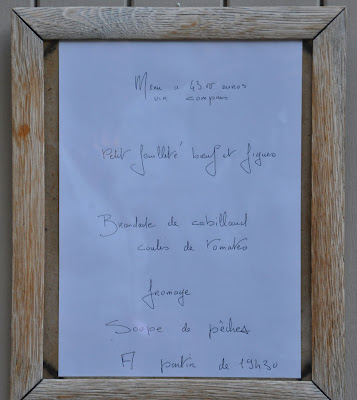 Menu a 43 00 euros
vin compris
Petit feuilleté boeuf et figues
Brandade de cabillaud
coulis de tomates
fromage
Soupe de pêches
A partir de 19h30